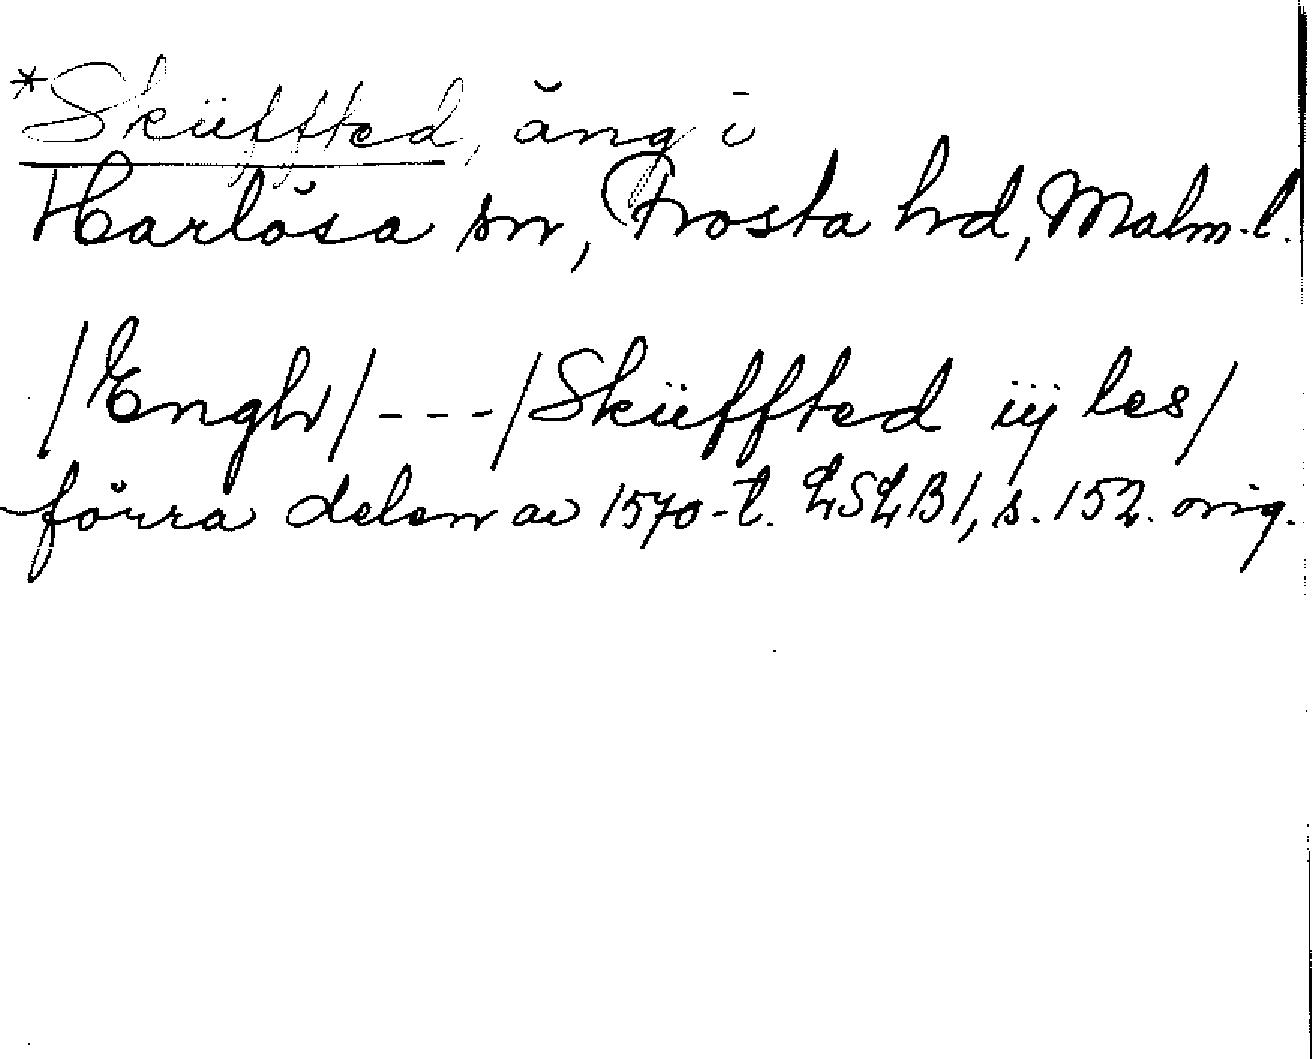 *Sküffted, äng i
Harlösa sn, Frosta hd, Malm. l.
/Engh/---/Sküffted iij les/
förra delen av 1570-t. LSLB1, s. 152. orig.